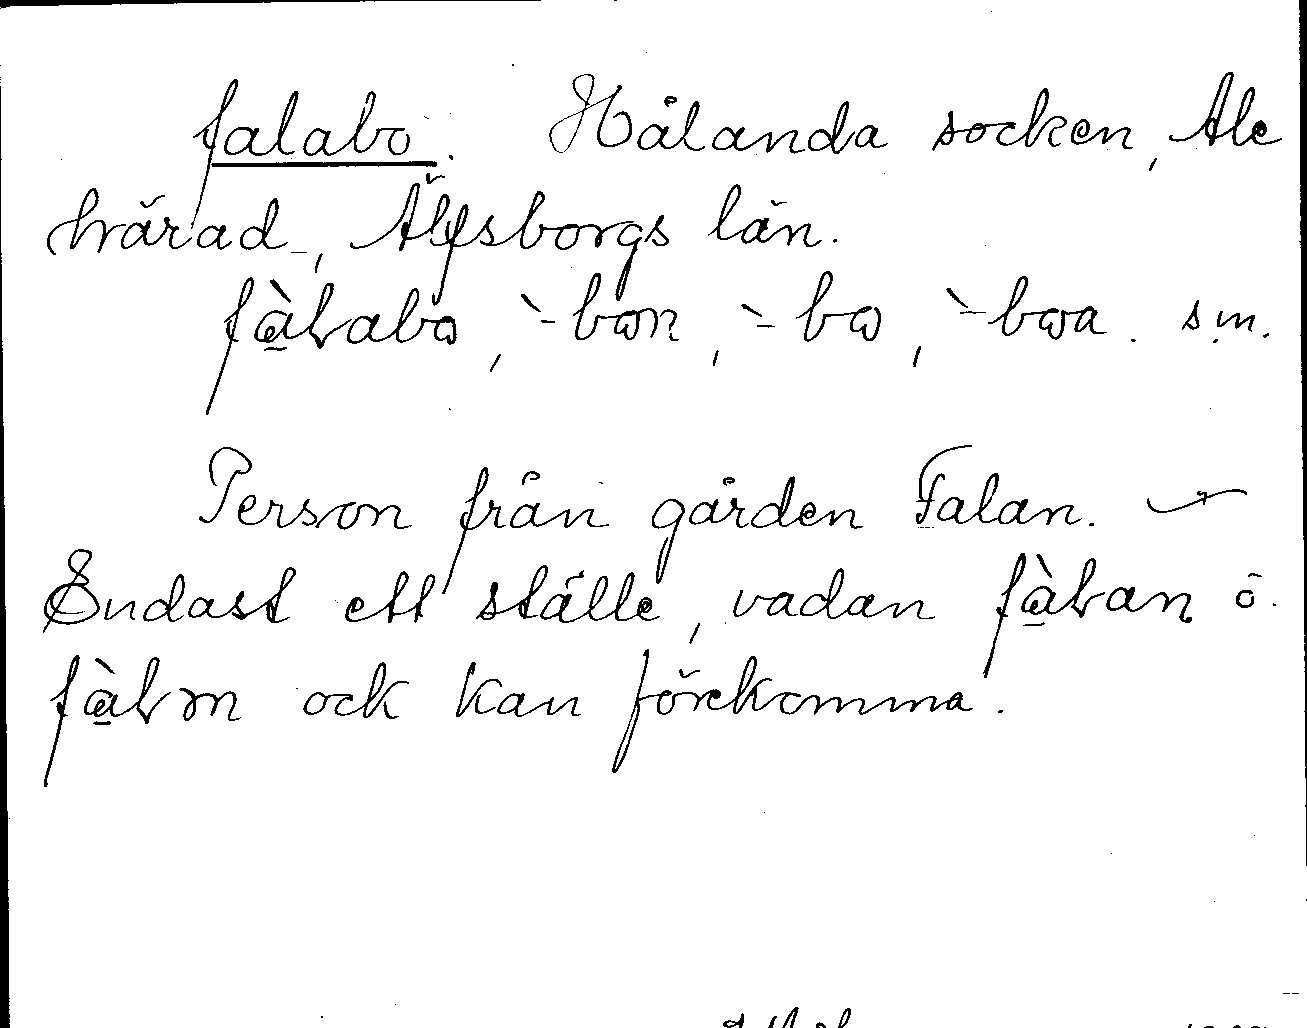 falabo. Hålanda socken, Ale
härad, Älfsborgs län.
fàɫabɷ, `-bɷn, `-bɷ, `-bɷa. s.m.
Person från gården Falan. —
Endast ett ställe, vadan fàɫan o.
fàɫɷn ock kan förekomma.